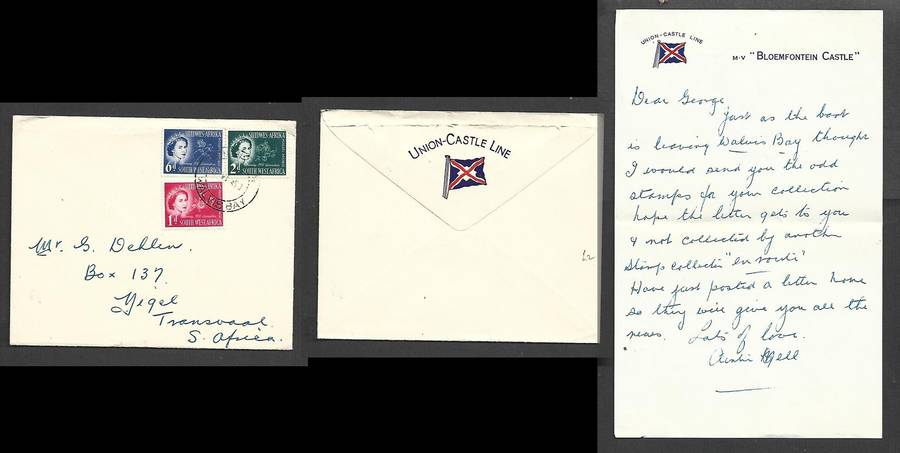 SUIDWES-AFRIKA
6d
SOUTH WEST AFRICA
SUIDWES-AFRIKA
2d
SOUTH WEST AFRICA
BAY
SUIDWES-AFRIKA
1d
SOUTH WEST AFRICA
Mr. G. Dehlen.
Box 137.
Nigel
Transvaal.
S. Africa.
UNION-CASTLE LINE
L2
UNION-CASTLE LINE
M·V "BLOEMFONTEIN CASTLE"
Dear George
just as the boat
is leaving Walvis Bay thought
I would send you the odd
stamps for your collection
hope the letter gets to you
& not collected by another
stamp collector "en route"
Have just posted a letter home
so they will give you all the
news. Lots of love.